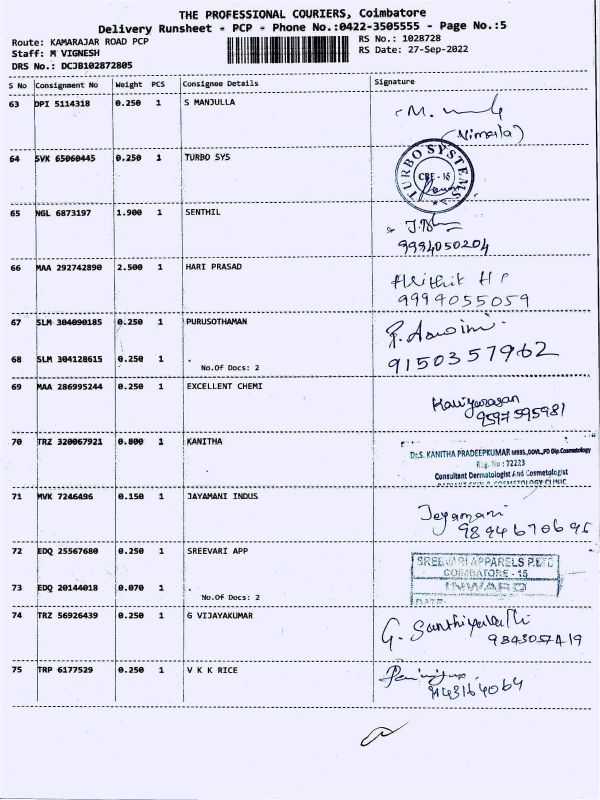 THE PROFESSIONAL COURIERS, Coimbatore
Delivery Runsheet - PCP - Phone No.:0422-3505555 - Page No.:5
Route: KAMARAJAR ROAD PCP RS No.: 1028728
Staff: M VIGNESH RS Date: 27-Sep-2022
DRS No.: DCJB102872805
S No Consignment No Weight PCS Consignee Details Signature
63 DPI 5114318 0.250 1 S MANJULLA
(Nimala)
64 SVK 65060445 0.250 1 TURBO SYS TURBO SYSTEMS CBE - 15
65 NGL 6873197 1.900 1 SENTHIL
9994050204
66 MAA 292742890 2.500 1 HARI PRASAD Hrithik H P
9994055059
67 SLM 304090185 0.250 1 PURUSOTHAMAN
68 SLM 304128615 0.250 1 . 9150357962
No.Of Docs: 2
69 MAA 286995244 0.250 1 EXCELLENT CHEMI Kaviyarasan
9597595981
70 TRZ 320067921 0.800 1 KANITHA Dr.S. KANITHA PRADEEPKUMAR MBBS.,DDVL.,PD Dip.Cosmetology
Reg. No : 72223
Consultant Dermatologist And Cosmetologist
SKIN & COSMETOLOGY CLINIC
71 MVK 7246496 0.150 1 JAYAMANI INDUS Jeyamani
9894670695
72 EDQ 25567680 0.250 1 SREEVARI APP SREEVARI APPARELS P.LTD
COIMBATORE - 15
73 EDQ 20144018 0.070 1 . INWARD
No.Of Docs: 2 DATE:
74 TRZ 56926439 0.250 1 G VIJAYAKUMAR G.
9843057419
75 TRP 6177529 0.250 1 V K K RICE